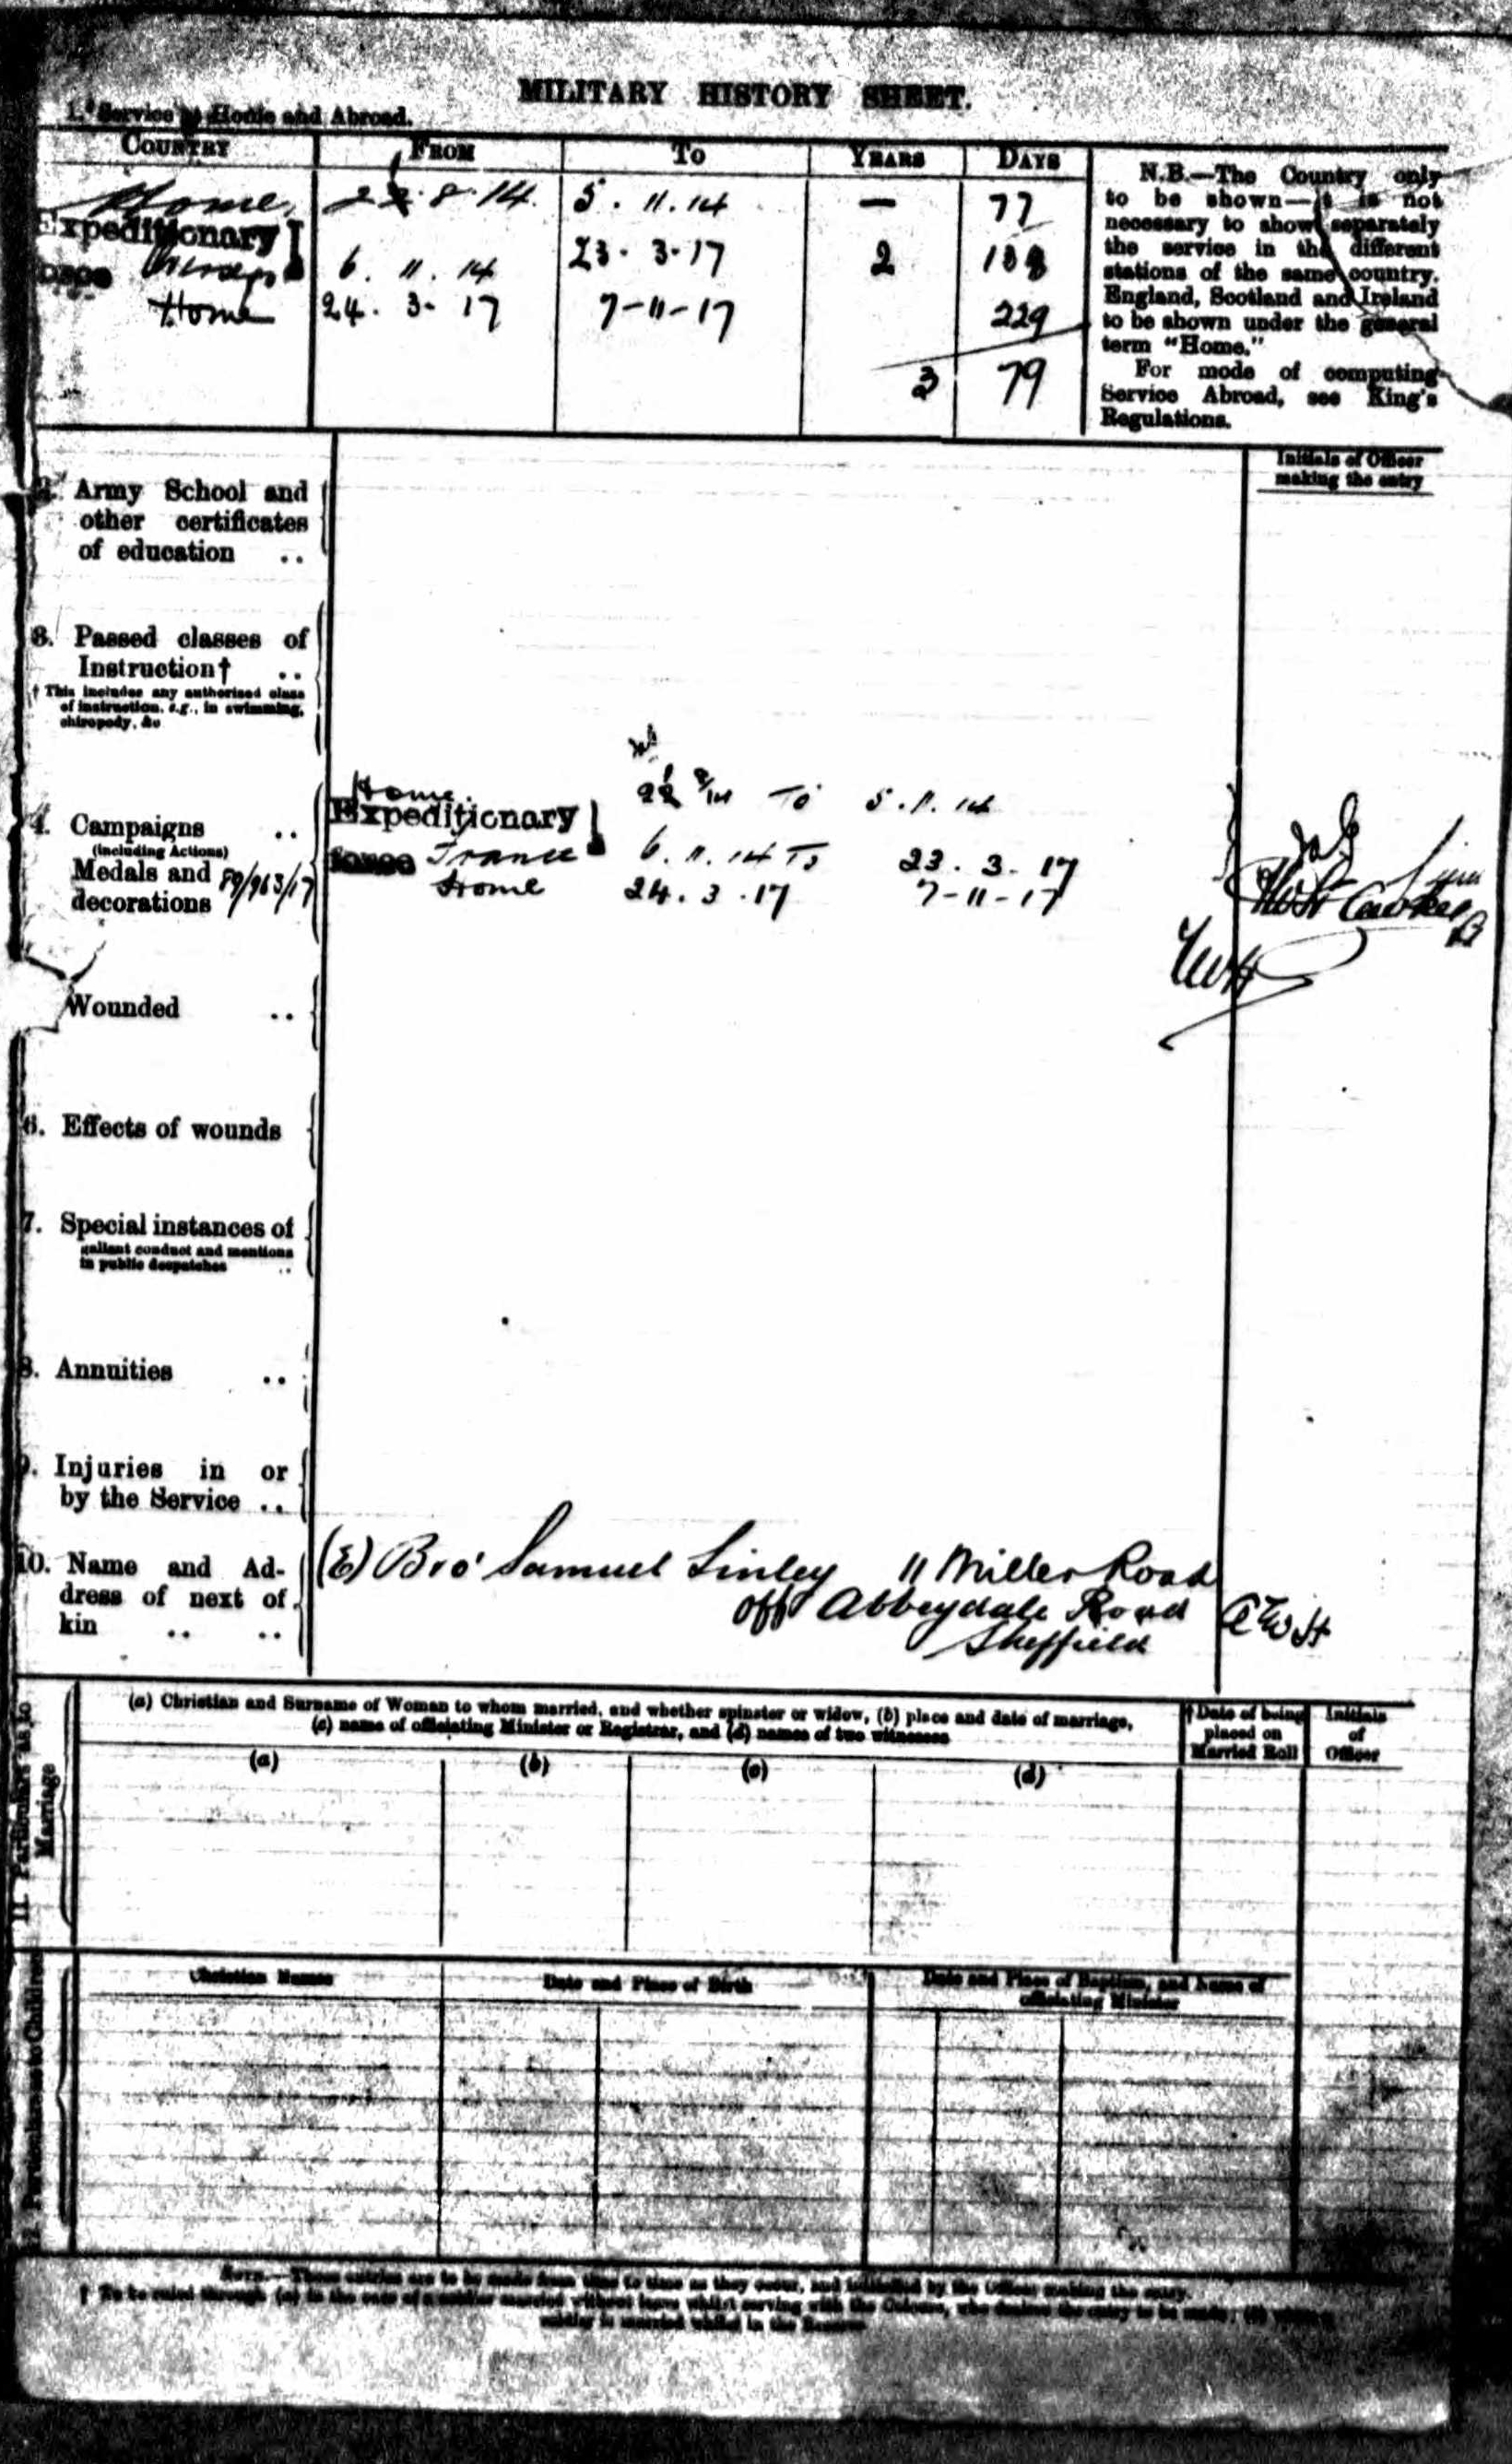 MILITARY HISTORY SHEET.
1. Service at Home and Abroad.
COUNTRY FROM TO YEARS DAYS
Home 8.14. 5.11.14 — 77
Expeditionary
Force 6.11.14 23.3.17 2 138
Home 24.3.17 7-11-17 229
3 79
N.B.—The Country only
to be shown—it is not
necessary to show separately
the service in the different
stations of the same country.
England, Scotland and Ireland
to be shown under the general
term "Home."
For mode of computing
Service Abroad, see King's
Regulations.
Initials of Officer
making the entry
2. Army School and
other certificates
of education ..
3. Passed classes of
Instruction† ..
† This includes any authorised class
of instruction, e.g., in swimming,
chiropody, &c
4. Campaigns ..
(including Actions)
Medals and
decorations 89/963/17
Home 8/14 To 5.11.14
Expeditionary
Force France 6.11.14 To 23.3.17
Home 24.3.17 7-11-17
Wounded ..
6. Effects of wounds
7. Special instances of
gallant conduct and mentions
in public despatches ..
8. Annuities ..
9. Injuries in or
by the Service ..
10. Name and Ad-
dress of next of
kin .. ..
(E) Bro' Samuel Linley 11 Miller Road
off Abbeydale Road
Sheffield
11. Particulars as to
Marriage
(a) Christian and Surname of Woman to whom married, and whether spinster or widow, (b) place and date of marriage,
(c) name of officiating Minister or Registrar, and (d) names of two witnesses
† Date of being
placed on
Married Roll
Initials
of
Officer
(a) (b) (c) (d)
12. Particulars as to Children
Christian Names Date and Place of Birth Date and Place of Baptism, and Name of
officiating Minister
NOTE.—These entries are to be made from time to time as they occur, and initialled by the Officer making the entry.